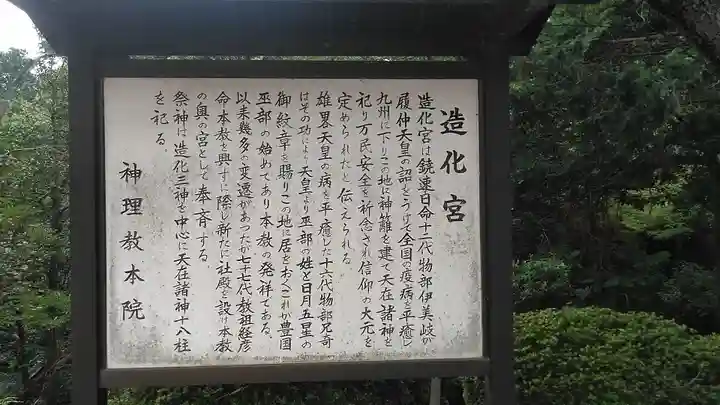 造化宮
造化宮は饒速日命十二代物部伊美岐が
履仲天皇の詔をうけて全国の疫病を平癒し
九州に下りこの地に神籬を建て天在諸神を
祀り万民安全を祈念され信仰の大元を
定められたと伝えられる。
雄畧天皇の病を平癒した十六代物部兄奇
はその功により天皇より巫部の姓と日月五星の
御紋章を賜りこの地に居をおくこれが豊国
巫部の始めであり本教の発祥である。
以来幾多の変遷があつたが七十七代教祖経彦
命本教を興すに際し新たに社殿を設け本教
の奥の宮として奉斎する。
祭神は造化三神を中心に天在諸神十八柱
を祀る。
神理教本院